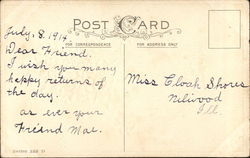 POST CARD
FOR CORRESPONDENCE
FOR ADDRESS ONLY
July, 8. 1914
Dear Friend.
I wish you many
happy returns of
the day.
as ever your
Friend Mae.
Miss Cloah Shores
Nilwood
Ill.